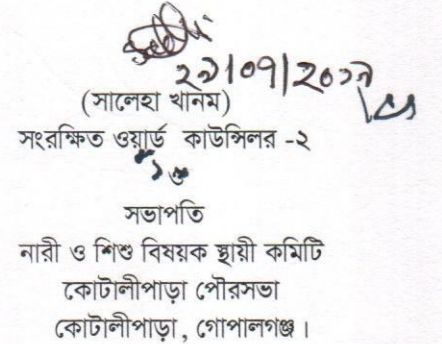 ২৯/০৭/২০১৯
(সালেহা খানম)
সংরক্ষিত ওয়ার্ড কাউন্সিলর -২
ও
সভাপতি
নারী ও শিশু বিষয়ক স্থায়ী কমিটি
কোটালীপাড়া পৌরসভা
কোটালীপাড়া, গোপালগঞ্জ।